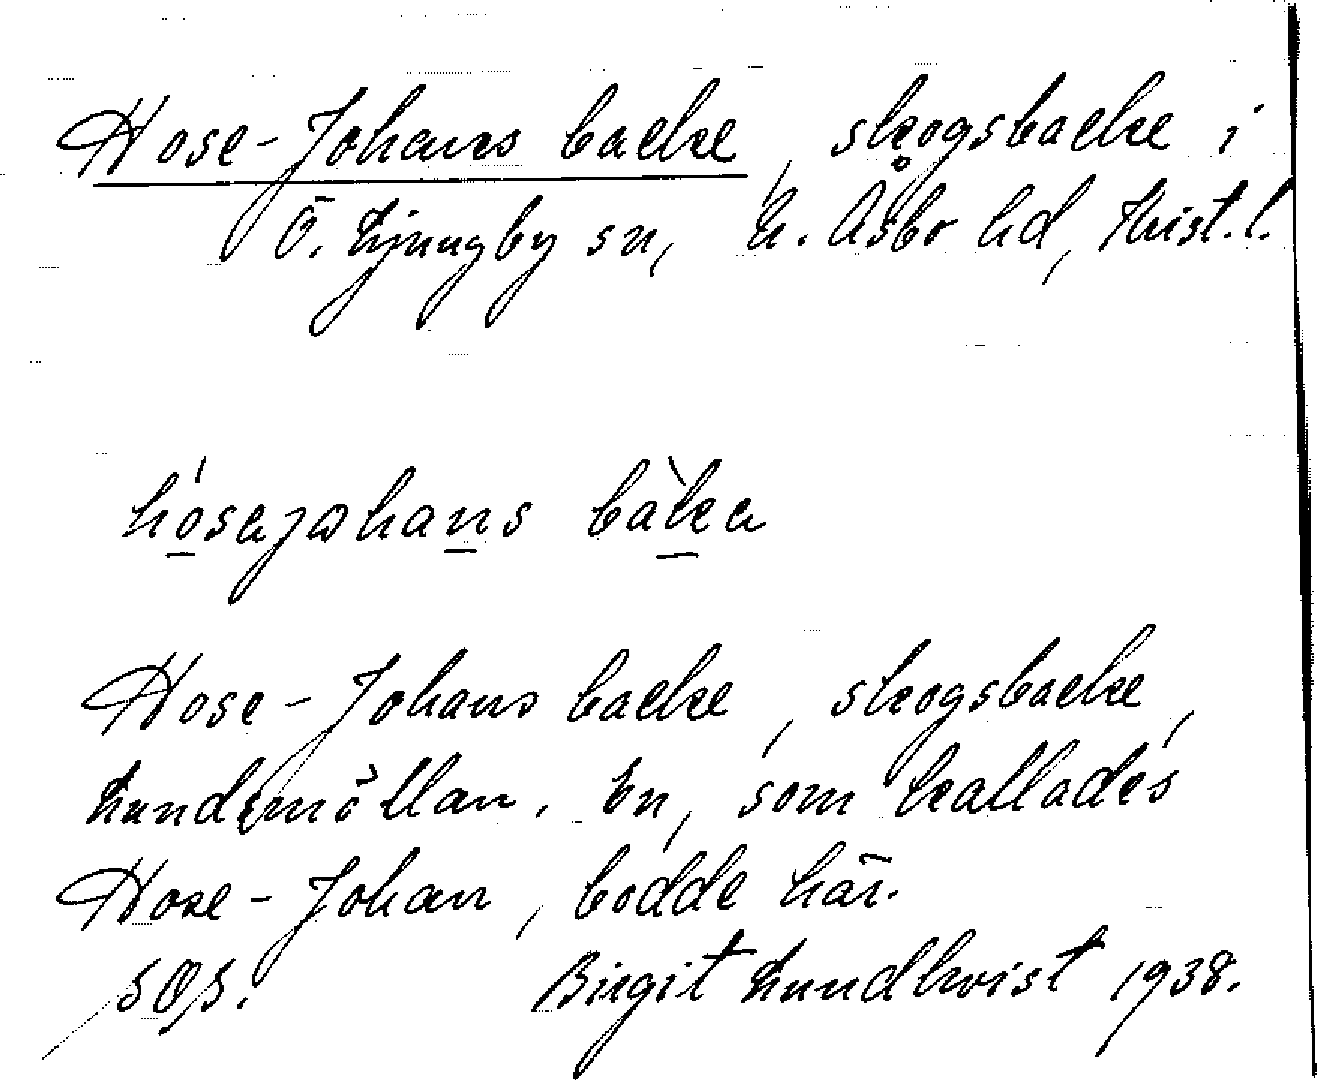 Hose-Johans backe, skogsbacke i
Ö. Ljungby sn, N. Åsbo hd, Krist. l.
hosajohans baka
Hose-Johans backe, skogsbacke,
Lundsmöllan. En, som kallades
Hose-Johan, bodde här.
SOS. Birgit Lundkvist 1938.